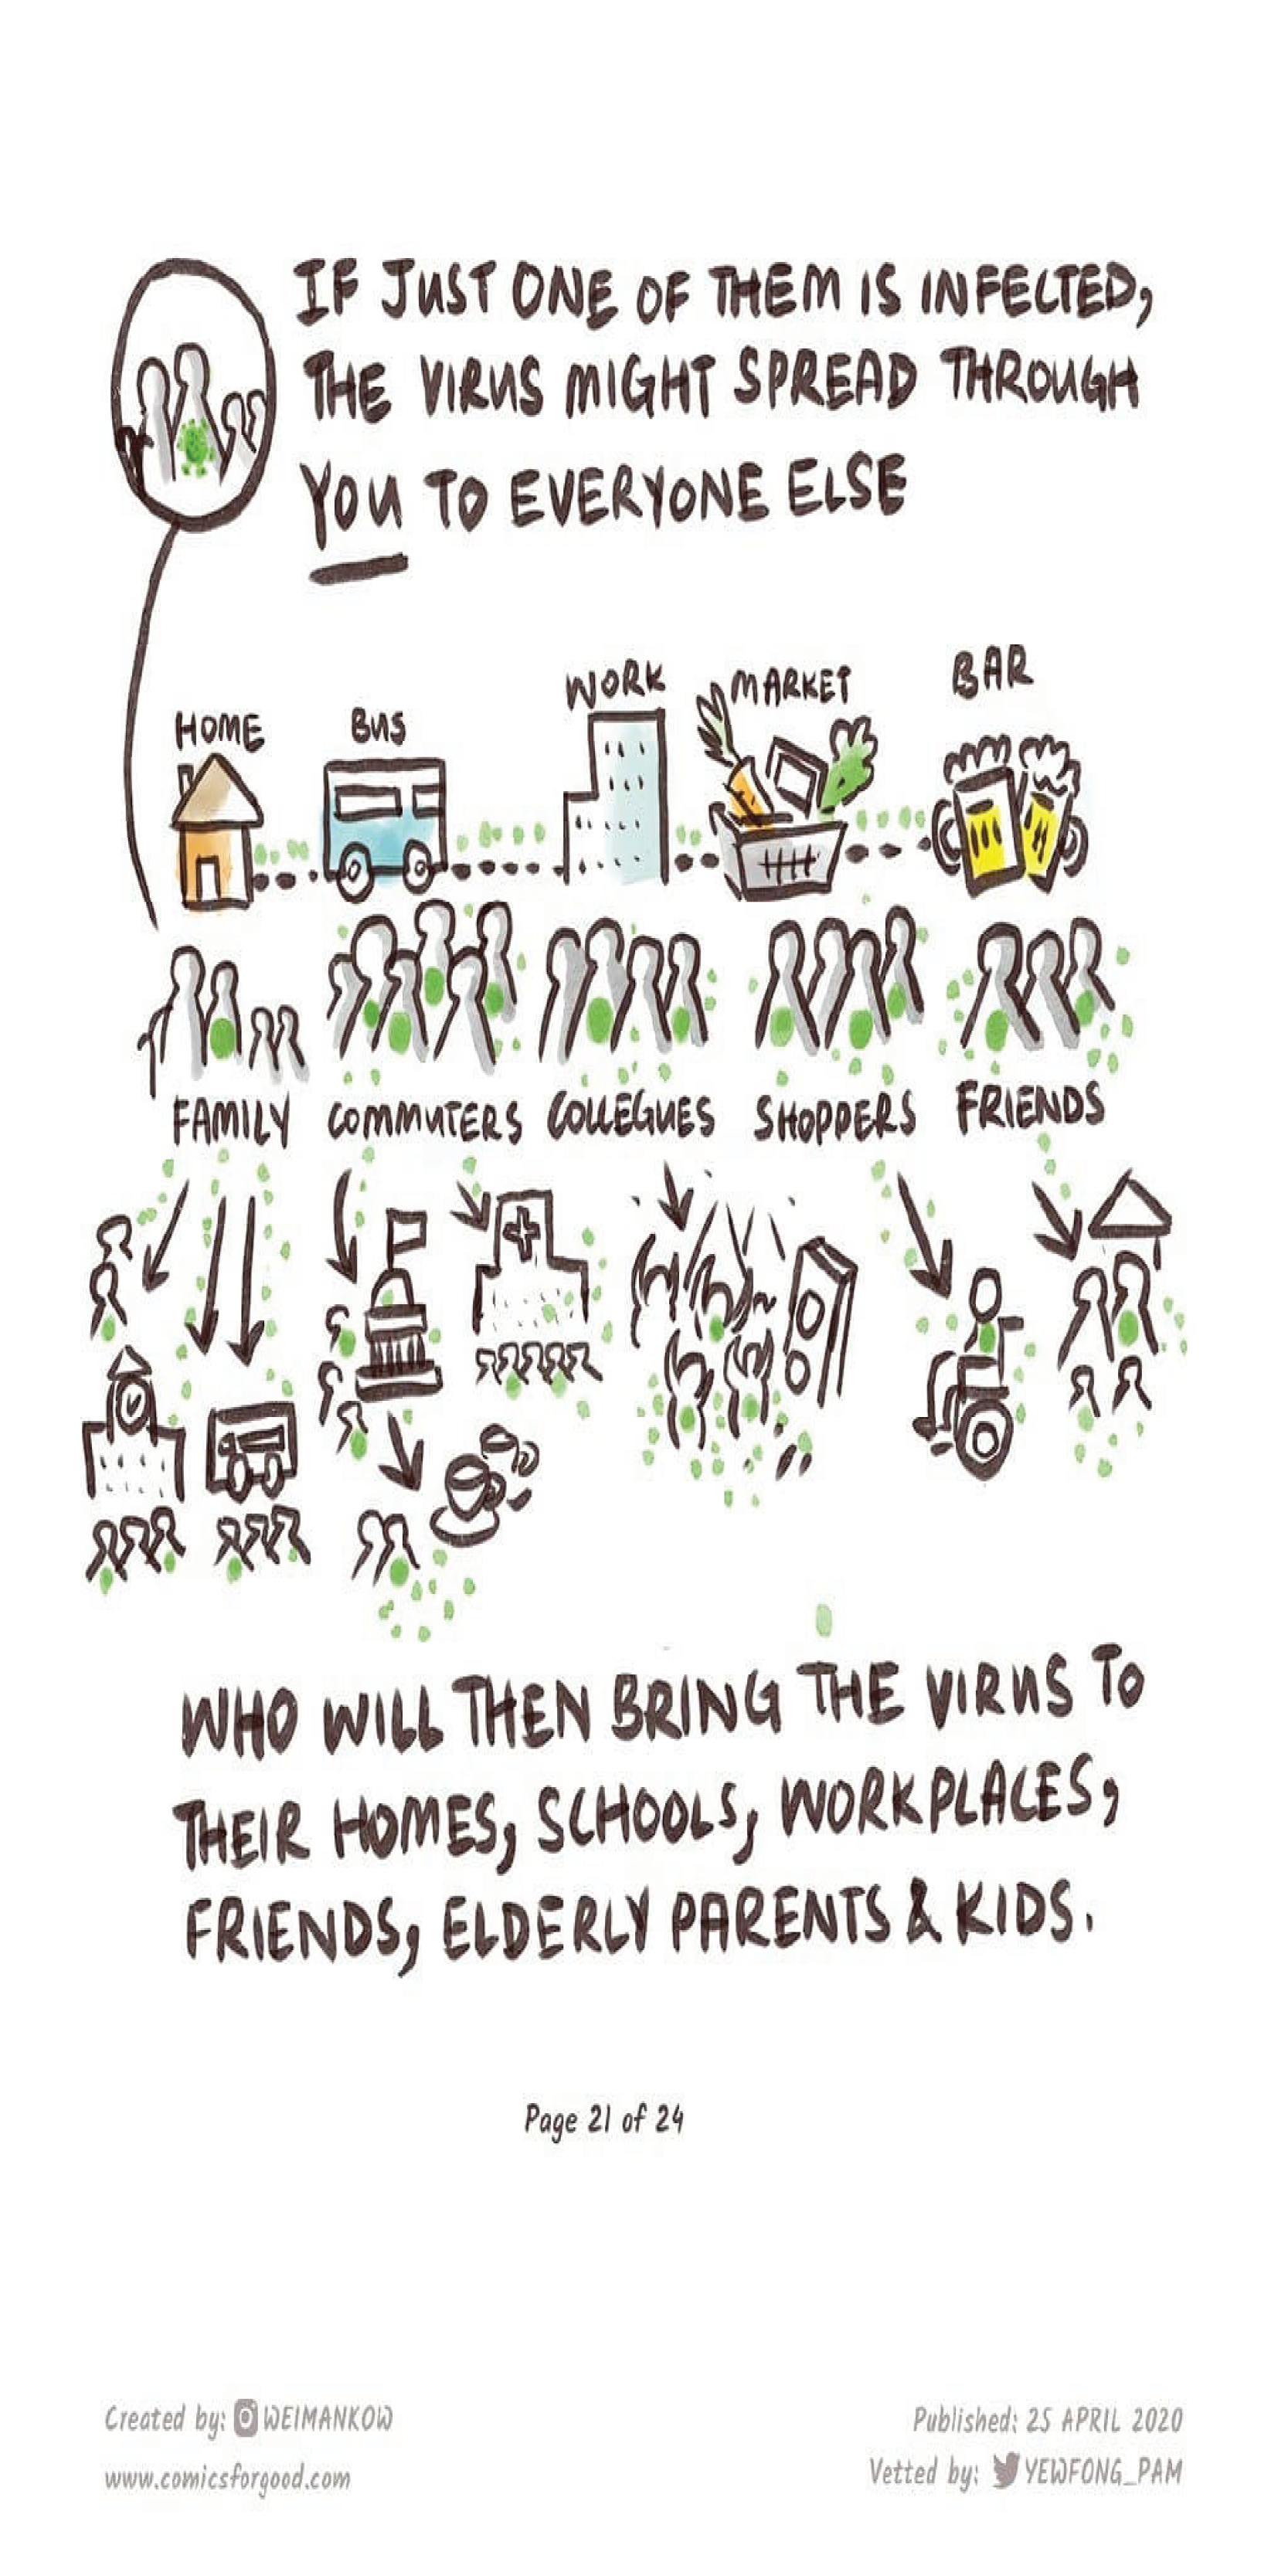 IF JUST ONE OF THEM IS INFECTED,
THE VIRUS MIGHT SPREAD THROUGH
YOU TO EVERYONE ELSE
HOME
BUS
WORK
MARKET
BAR
FAMILY
COMMUTERS
COLLEGUES
SHOPPERS
FRIENDS
WHO WILL THEN BRING THE VIRUS TO
THEIR HOMES, SCHOOLS, WORKPLACES,
FRIENDS, ELDERLY PARENTS & KIDS.
Page 21 of 24
Created by: WEIMANKOW
www.comicsforgood.com
Published: 25 APRIL 2020
Vetted by: YEWFONG_PAM